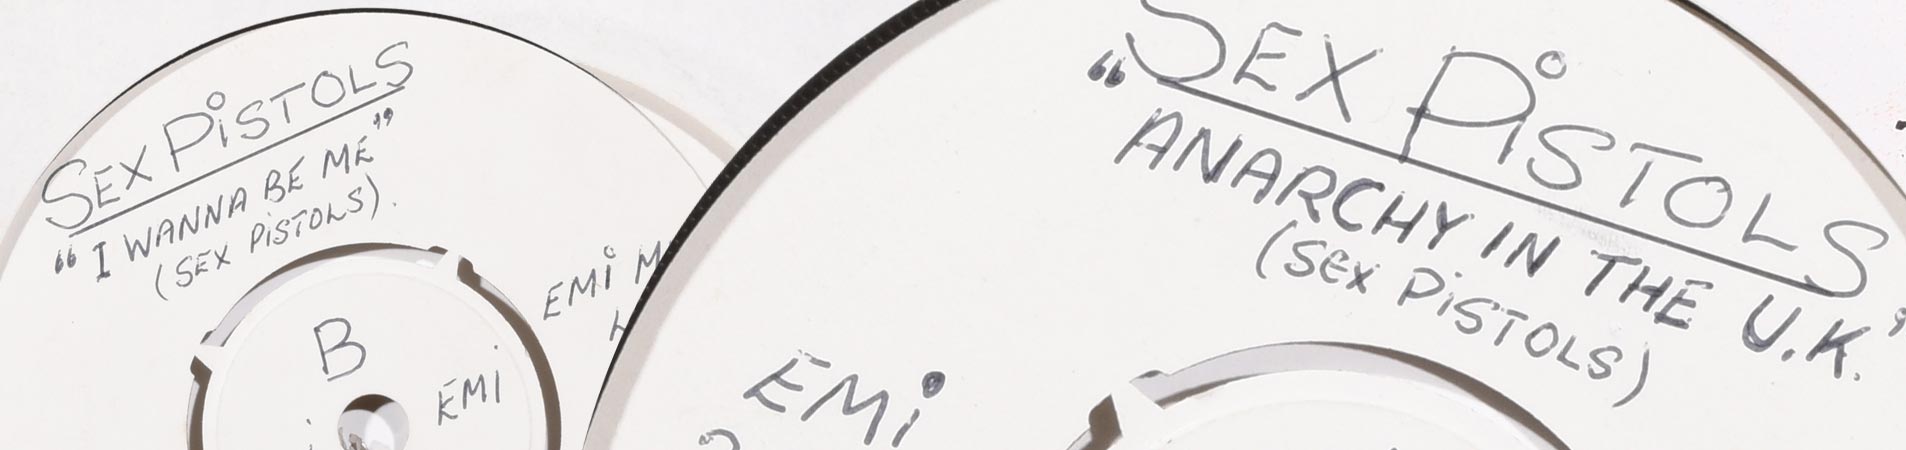 SEX PiSTOLS
“I WANNA BE ME”
(SEX PiSTOLS).
EMi
B
EMI
SEX PiSTOLS
“ANARCHY IN THE U.K.”
(SEX PiSTOLS)
EMi